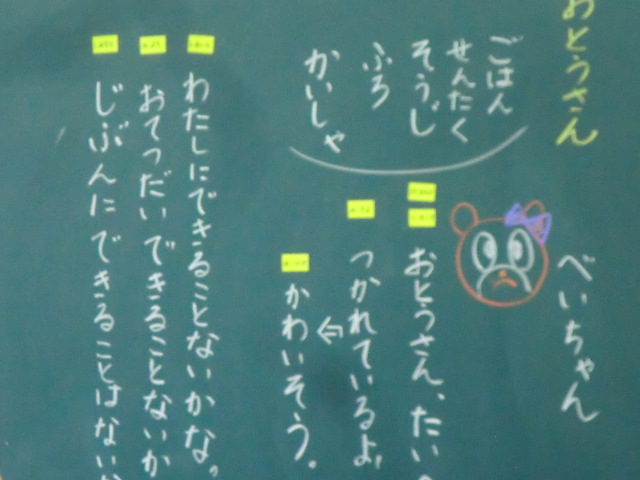 おとうさん
ごはん
せんたく
そうじ
ふろ
かいしゃ
べいちゃん
おとうさん、たい
つかれているよ
かわいそう。
わたしにできることないかな。
おてつだいできることないか
じぶんにできることはないか